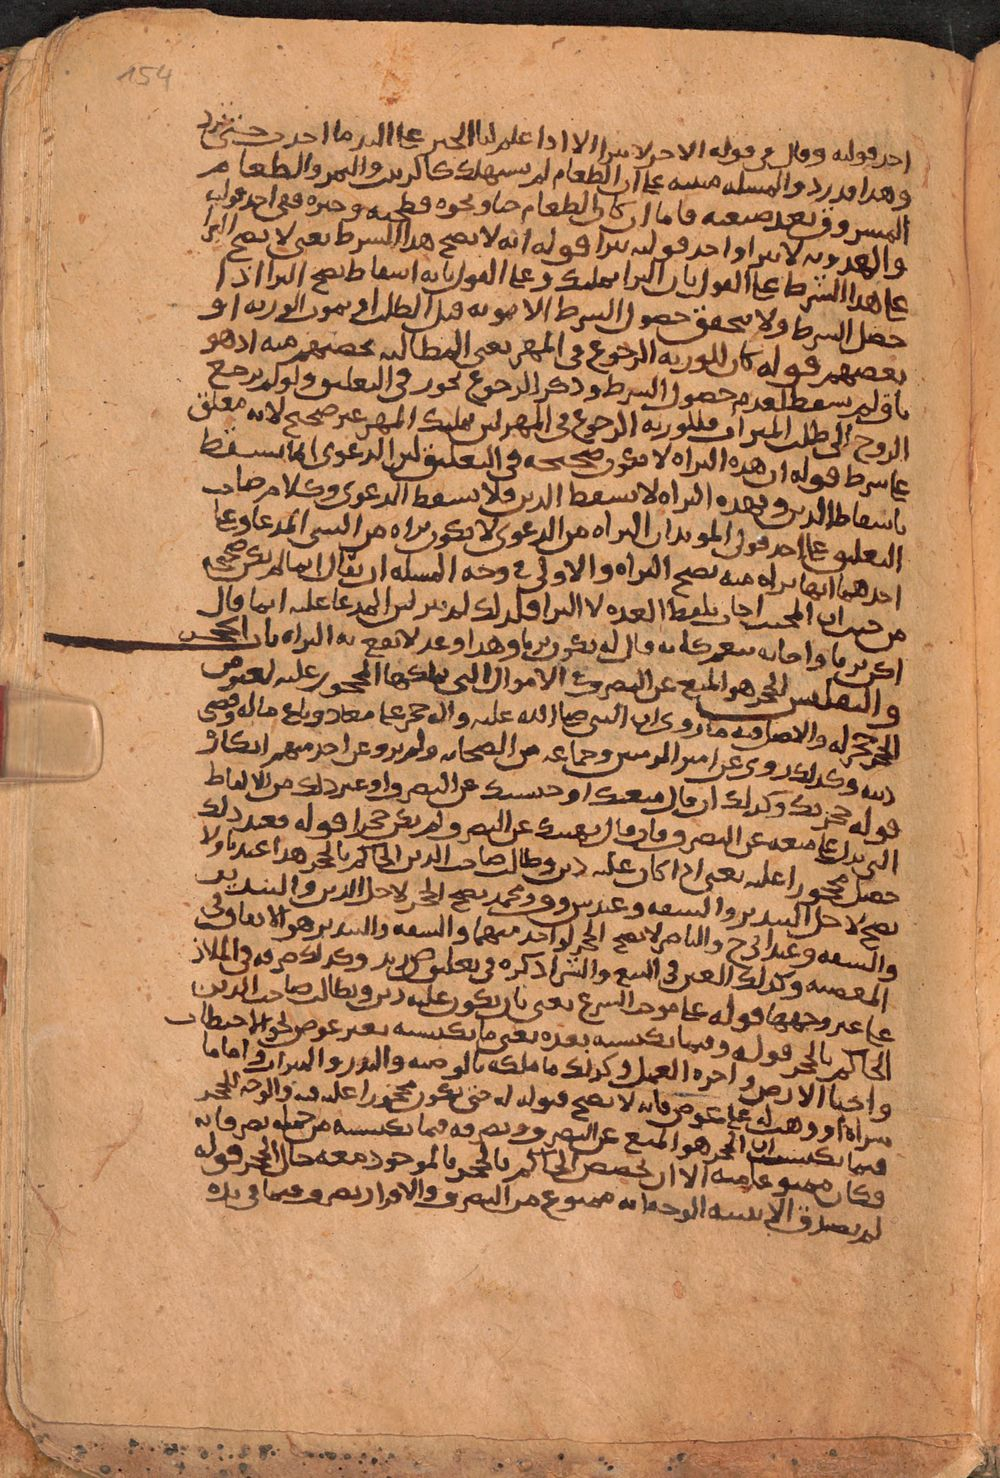 154
احد قوليه وقال في قوله الاخر لا يبرا الا اذا علم لنا الخبر على
وهذا قد رد والمسله مبنيه على ان الطعام لم يستهلك كالزبيب والتمر والطعام
المسروق بعد صنعه فاما ان كان الطعام حبا ونحوه فطحنه وخبزه ففي احد قولي
والهدويه لا يبرا واحد قوليه يبرا قوله انه لا يصح هذا الشرط يعني لا يصح البرا
على هذا الشرط على القول بان البرا تمليك وعلى القول بانه اسقاط يصح البرا اذا
حصل الشرط ولا يتحقق حصول الشرط الا بموته قبل الطلب او بموت الورثه او
بعضهم قوله كان للورثه الرجوع في المهر يعني المطالبه بحصتهم منه اذ هو
باق لم يسقط لعدم حصول الشرط وذكر الرجوع تجوز في التعليق ولو لم يرجع
الزوج الى طلب الميراث فللورثه الرجوع في المهر لان تمليك المهر غير صحيح لانه معلق
على شرط قوله ان هذه البراه لا تكون صحيحه في التعليق لان الدعوى انما تسقط
باسقاط الدين وبهذه البراه لا يسقط الدين فلا تسقط الدعوى وكلام صاحب
التعليق على احد قولي المويد ان البراه من الدعوى لا يكون براه من الشي المدعا وعلى
احدهما انها براه منه تصح البراه والاولى في وجه المسله ان يقال انما لم تكن صحيحه
من حيث ان المجيب اجاب بلفظ العده لا البرا فلذلك لم يبر لان المدعا عليه انما قال
اكن بريا واجابه بنعم كانه قال له تكون بريا وهذا وعد لا تقع به البراه باب الحجر
والتفليس الحجر هو المنع عن التصرف في الاموال التي يملكها المحجور عليه لعوض
الحجر حجر له والاصل فيه ما روي ان النبي صلى الله عليه واله حجر على معاذ وباع ماله وقضى
دينه وكذلك روي عن امير المومنين وجماعه من الصحابه ولم يرو عن احد منهم انكار
قوله حجرتك وكذلك ان قال منعتك او حبستك عن التصرف او غير ذلك من الالفاظ
التي تدل على منعه عن التصرف فان قال نهيتك عن التصرف لم يكن حجرا قوله فعند ذلك
حصل محجورا عليه يعني اذا كان عليه دين وطالب صاحب الدين الحاكم بالحجر هذا عندنا ولا
يصح لاجل التبذير والسفه وعند س وف ومحمد يصح الحجر لاجل الدين والتبذير
والسفه وعند ابي ح والناصر لا يصح الحجر لواحد منهما والسفه والتبذير هو الانفاق في
المعصيه وكذلك الغبن في البيع والشرا ذكره في تعليق ض زيد وكذلك صرفه في الملاذ
على غير وجهها قوله على موجب الشرع يعني بان يكون عليه دين ويطالب صاحب الدين
الحاكم بالحجر قوله وفيما يكتسبه بعده يعني ما يكتسبه بغير عوض نحو الاحتطاب
واحيا الارض واجره العمل وكذلك ما ملكه بالوصيه والنذر والميراث واما ما
شراه او وهب له على عوض فانه لا يصح قبوله له حتى يكون محجورا عليه فيه والوجه للحجر
فيما يكتسب ان الحجر هو المنع عن التصرف وتصرفه فيما يكتسبه من جمله تصرفاته
فكان ممنوعا منه الا ان يخصص الحاكم بالحجر بالموجود معه حال الحجر قوله
لم يصدق الا ببينه الوجه انه ممنوع من التصرف والاقرار تصرف فيما في يده